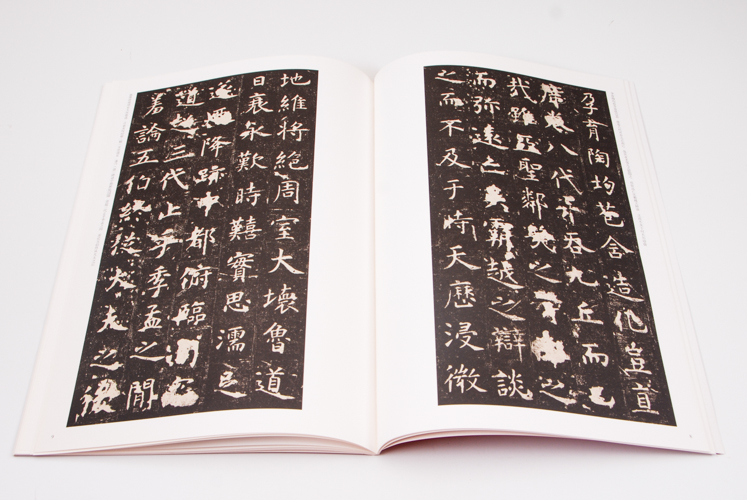 孕育陶均苞含造化豈直
席卷八代并吞九丘而已
哉雖亞聖鄰幾之智仰之
而彌遠亡吳霸越之辯談
之而不及于時天歷浸微
地維將絕周室大壞魯道
日衰永歎時囏實思濡足
遂迺降跡中都俯臨司寇
道超三代止乎季孟之閒
羞論五伯終從大夫之後